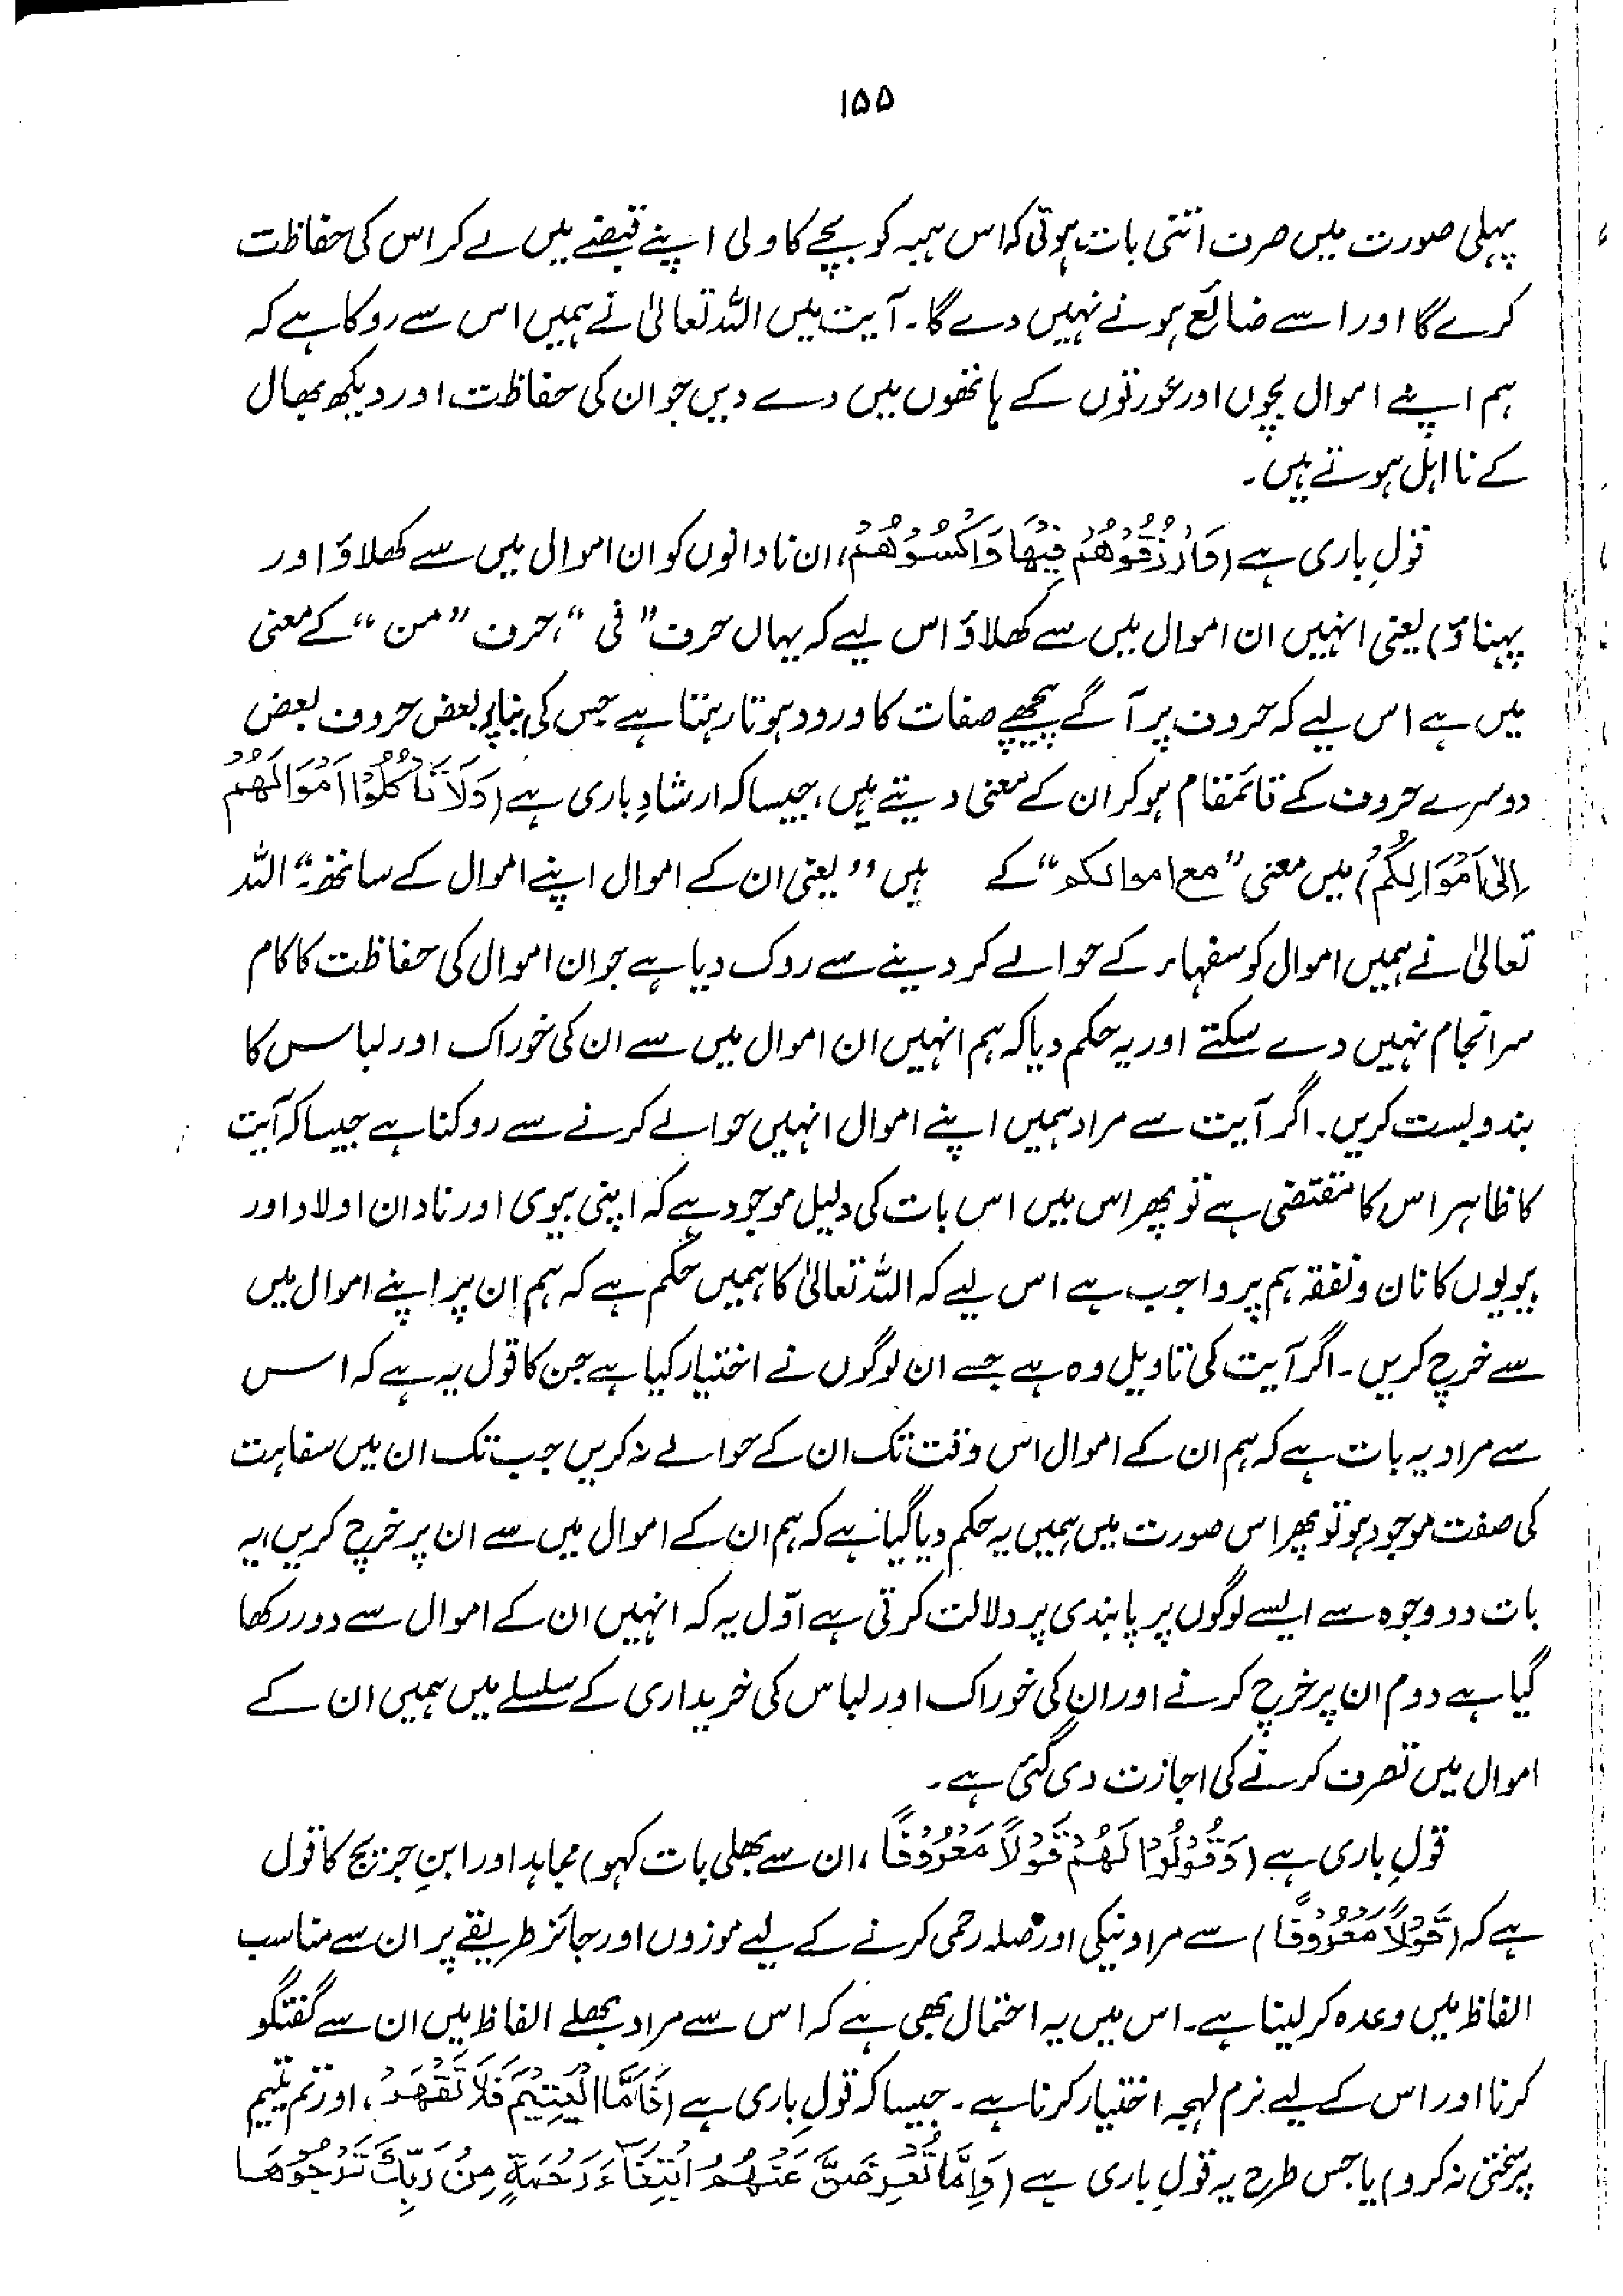 ۱۵۵
پہلی صورت میں صرف اتنی بات ہوتی کہ اس ہبہ کو بچے کا ولی اپنے قبضے میں لے کر اس کی حفاظت
کرے گا اور اسے ضائع ہونے نہیں دے گا۔ آیت میں اللہ تعالیٰ نے ہمیں اس سے روکا ہے کہ
ہم اپنے اموال بچوں اور عورتوں کے ہاتھوں میں دے دیں جو ان کی حفاظت اور دیکھ بھال
کے نا اہل ہوتے ہیں۔
قولِ باری ہے (وَارْزُقُوْهُمْ فِيْهَا وَاكْسُوْهُمْ، ان نادانوں کو ان اموال میں سے کھلاؤ اور
پہناؤ) یعنی انہیں ان اموال میں سے کھلاؤ اس لیے کہ یہاں حرف "فی"، حرف "من" کے معنی
میں ہے اس لیے کہ حروف پر آگے پیچھے صفات کا ورود ہوتا رہتا ہے جس کی بنا پر بعض حروف بعض
دوسرے حروف کے قائمقام ہو کر ان کے معنی دیتے ہیں، جیسا کہ ارشادِ باری ہے (وَلَا تَأْكُلُوْا اَمْوَالَهُمْ
اِلٰى اَمْوَالِكُمْ) میں معنی "مع اموالکم" کے ہیں "یعنی ان کے اموال اپنے اموال کے ساتھ"۔ اللہ
تعالیٰ نے ہمیں اموال کو سفہاء کے حوالے کر دینے سے روک دیا ہے جو ان اموال کی حفاظت کا کام
سرانجام نہیں دے سکتے اور یہ حکم دیا کہ ہم انہیں ان اموال میں سے ان کی خوراک اور لباس کا
بندوبست کریں۔ اگر آیت سے مراد ہمیں اپنے اموال انہیں حوالے کرنے سے روکنا ہے جیسا کہ آیت
کا ظاہر اس کا مقتضی ہے تو پھر اس میں اس بات کی دلیل موجود ہے کہ اپنی بیوی اور نادان اولاد اور
بیویوں کا نان و نفقہ ہم پر واجب ہے اس لیے کہ اللہ تعالیٰ کا ہمیں حکم ہے کہ ہم ان پر اپنے اموال میں
سے خرچ کریں۔ اگر آیت کی تاویل وہ ہے جسے ان لوگوں نے اختیار کیا ہے جن کا قول یہ ہے کہ اس
سے مراد یہ بات ہے کہ ہم ان کے اموال اس وقت تک ان کے حوالے نہ کریں جب تک ان میں سفاہت
کی صفت موجود ہو تو پھر اس صورت میں ہمیں یہ حکم دیا گیا ہے کہ ہم ان کے اموال میں سے ان پر خرچ کریں، یہ
بات دو وجوہ سے ایسے لوگوں پر پابندی پر دلالت کرتی ہے اوّل یہ کہ انہیں ان کے اموال سے دور رکھا
گیا ہے دوم ان پر خرچ کرنے اور ان کی خوراک اور لباس کی خریداری کے سلسلے میں ہمیں ان کے
اموال میں تصرف کرنے کی اجازت دی گئی ہے۔
قولِ باری ہے (وَقُوْلُوْا لَهُمْ قَوْلًا مَعْرُوْفًا، ان سے بھلی بات کہو) مجاہد اور ابنِ جریج کا قول
ہے کہ (قَوْلًا مَعْرُوْفًا) سے مراد نیکی اور صلہ رحمی کرنے کے لیے موزوں اور جائز طریقے پر ان سے مناسب
الفاظ میں وعدہ کر لینا ہے۔ اس میں یہ احتمال بھی ہے کہ اس سے مراد بھلے الفاظ میں ان سے گفتگو
کرنا اور اس کے لیے نرم لہجہ اختیار کرنا ہے۔ جیسا کہ قولِ باری ہے (فَاَمَّا الْيَتِيْمَ فَلَا تَقْهَرْ، اور تم یتیم
پر سختی نہ کرو) یا جس طرح یہ قولِ باری ہے (وَاِمَّا تُعْرِضَنَّ عَنْهُمُ ابْتِغَآءَ رَحْمَةٍ مِنْ رَبِّكَ تَرْجُوْهَا